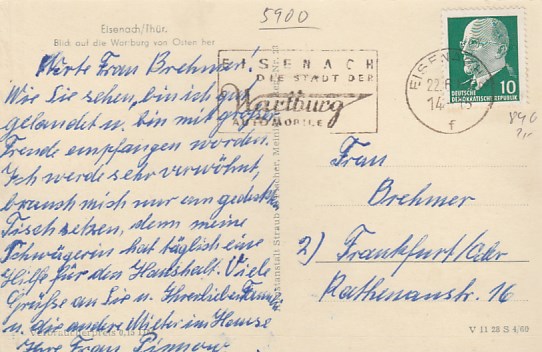 5900
Eisenach/Thür.
Blick auf die Wartburg von Osten her
EISENACH
DIE STADT DER
Wartburg
AUTOMOBILE
EISENACH
22.6
14
f
10
DEUTSCHE
DEMOKRATISCHE REPUBLIK
Werte Frau Brehmer!
Wie Sie sehen, bin ich gut
gelandet u. bin mit großer
Freude empfangen worden.
Ich werde sehr verwöhnt,
brauch mich nur am gedeckt.
Tisch setzen, denn meine
Schwägerin hat täglich eine
Hilfe für den Haushalt. Viele
Grüße an Sie u. Ihren lieben
u. die andere Mieter im Hause
Ihre Frau
Frau
Brehmer
2) Frankfurt/Oder
Rathenaustr. 16
Kunstanstalt Straub
Verbraucherpreis
V 11 28 S 4/60